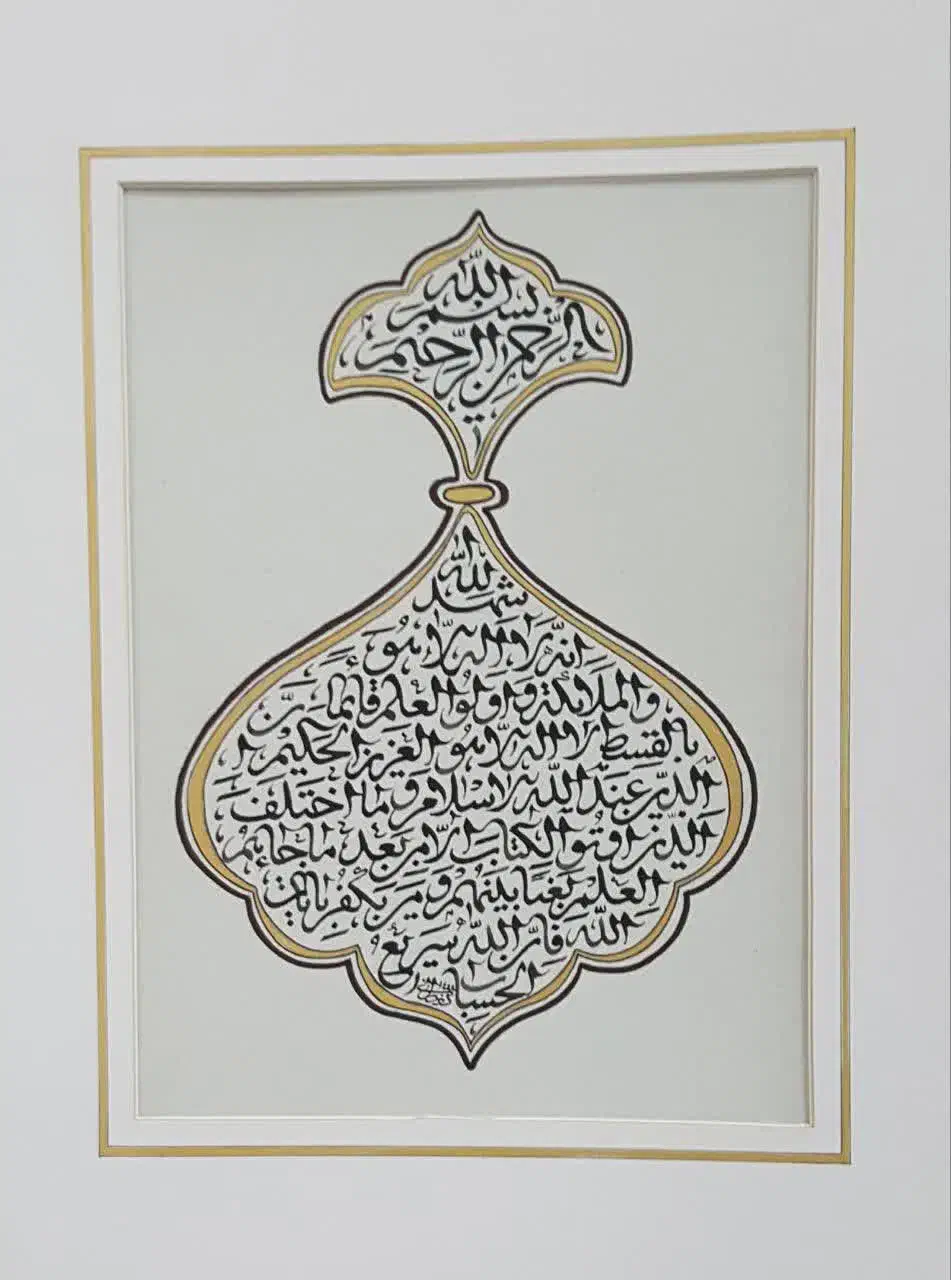 بسم الله
الرحمن الرحيم
شهد الله
انه لا اله الا هو
والملائكة واولو العلم قائما
بالقسط لا اله الا هو العزيز الحكيم ان
الدين عند الله الاسلام وما اختلف
الذين اوتو الكتاب الا من بعد ما جائهم
العلم بغيا بينهم ومن يكفر بايات
الله فان الله سريع
الحساب